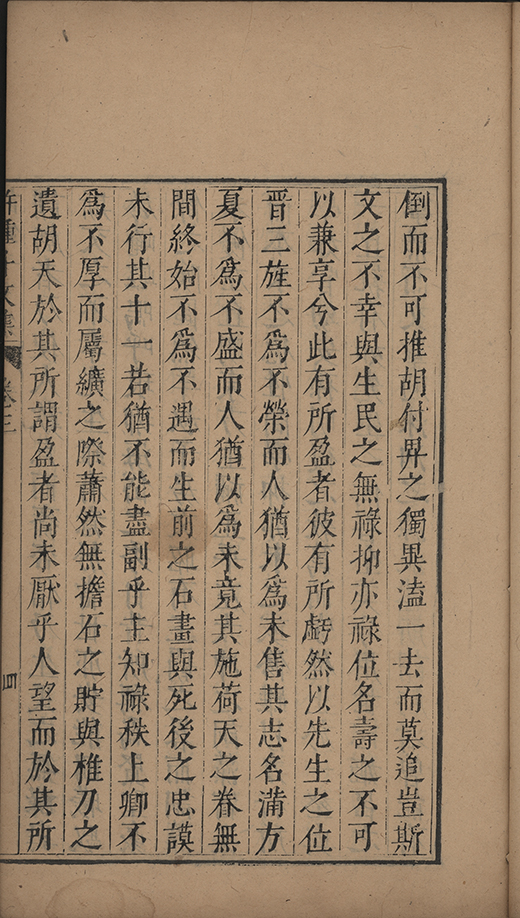 倒而不可推胡付畀之獨異溘一去而莫追豈斯
文之不幸與生民之無祿抑亦祿位名壽之不可
以兼享兮此有所盈者彼有所虧然以先生之位
晉三旌不為不榮而人猶以為未售其志名滿方
夏不為不盛而人猶以為未竟其施荷天之眷無
間終始不為不遇而生前之石畫與死後之忠謨
未行其十一若猶不能盡副乎主知祿秩上卿不
為不厚而屬纊之際蕭然無擔石之貯與椎刀之
遺胡天於其所謂盈者尚未厭乎人望而於其所
許鍾斗文集
卷三
四